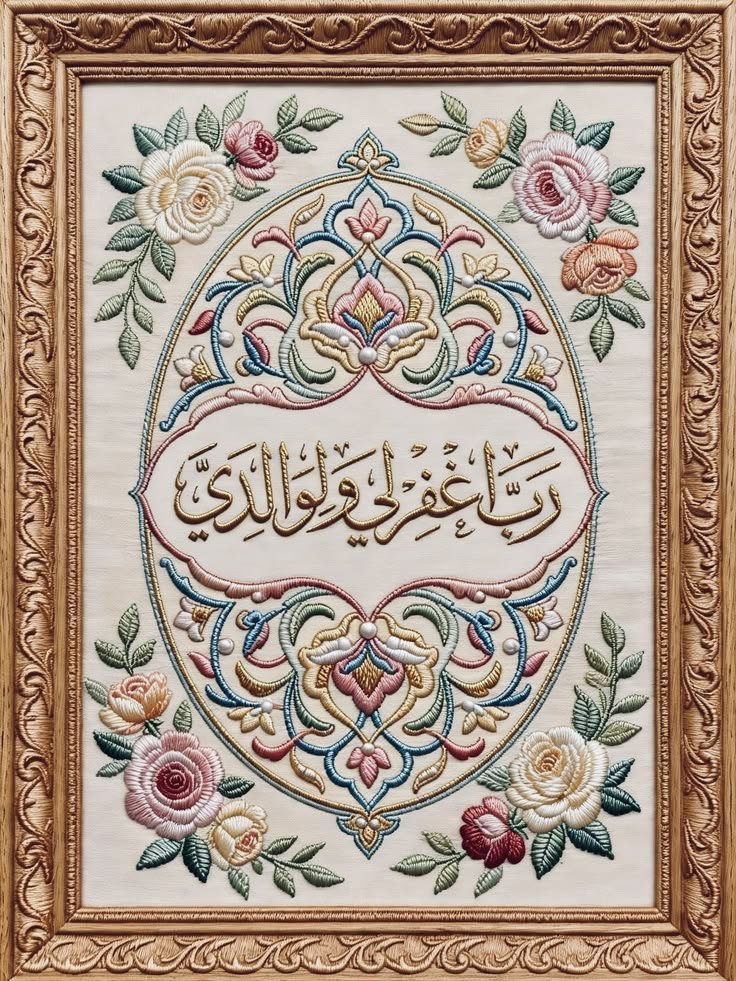 رَبِّ اغْفِرْ لِي وَلِوَالِدَيَّ